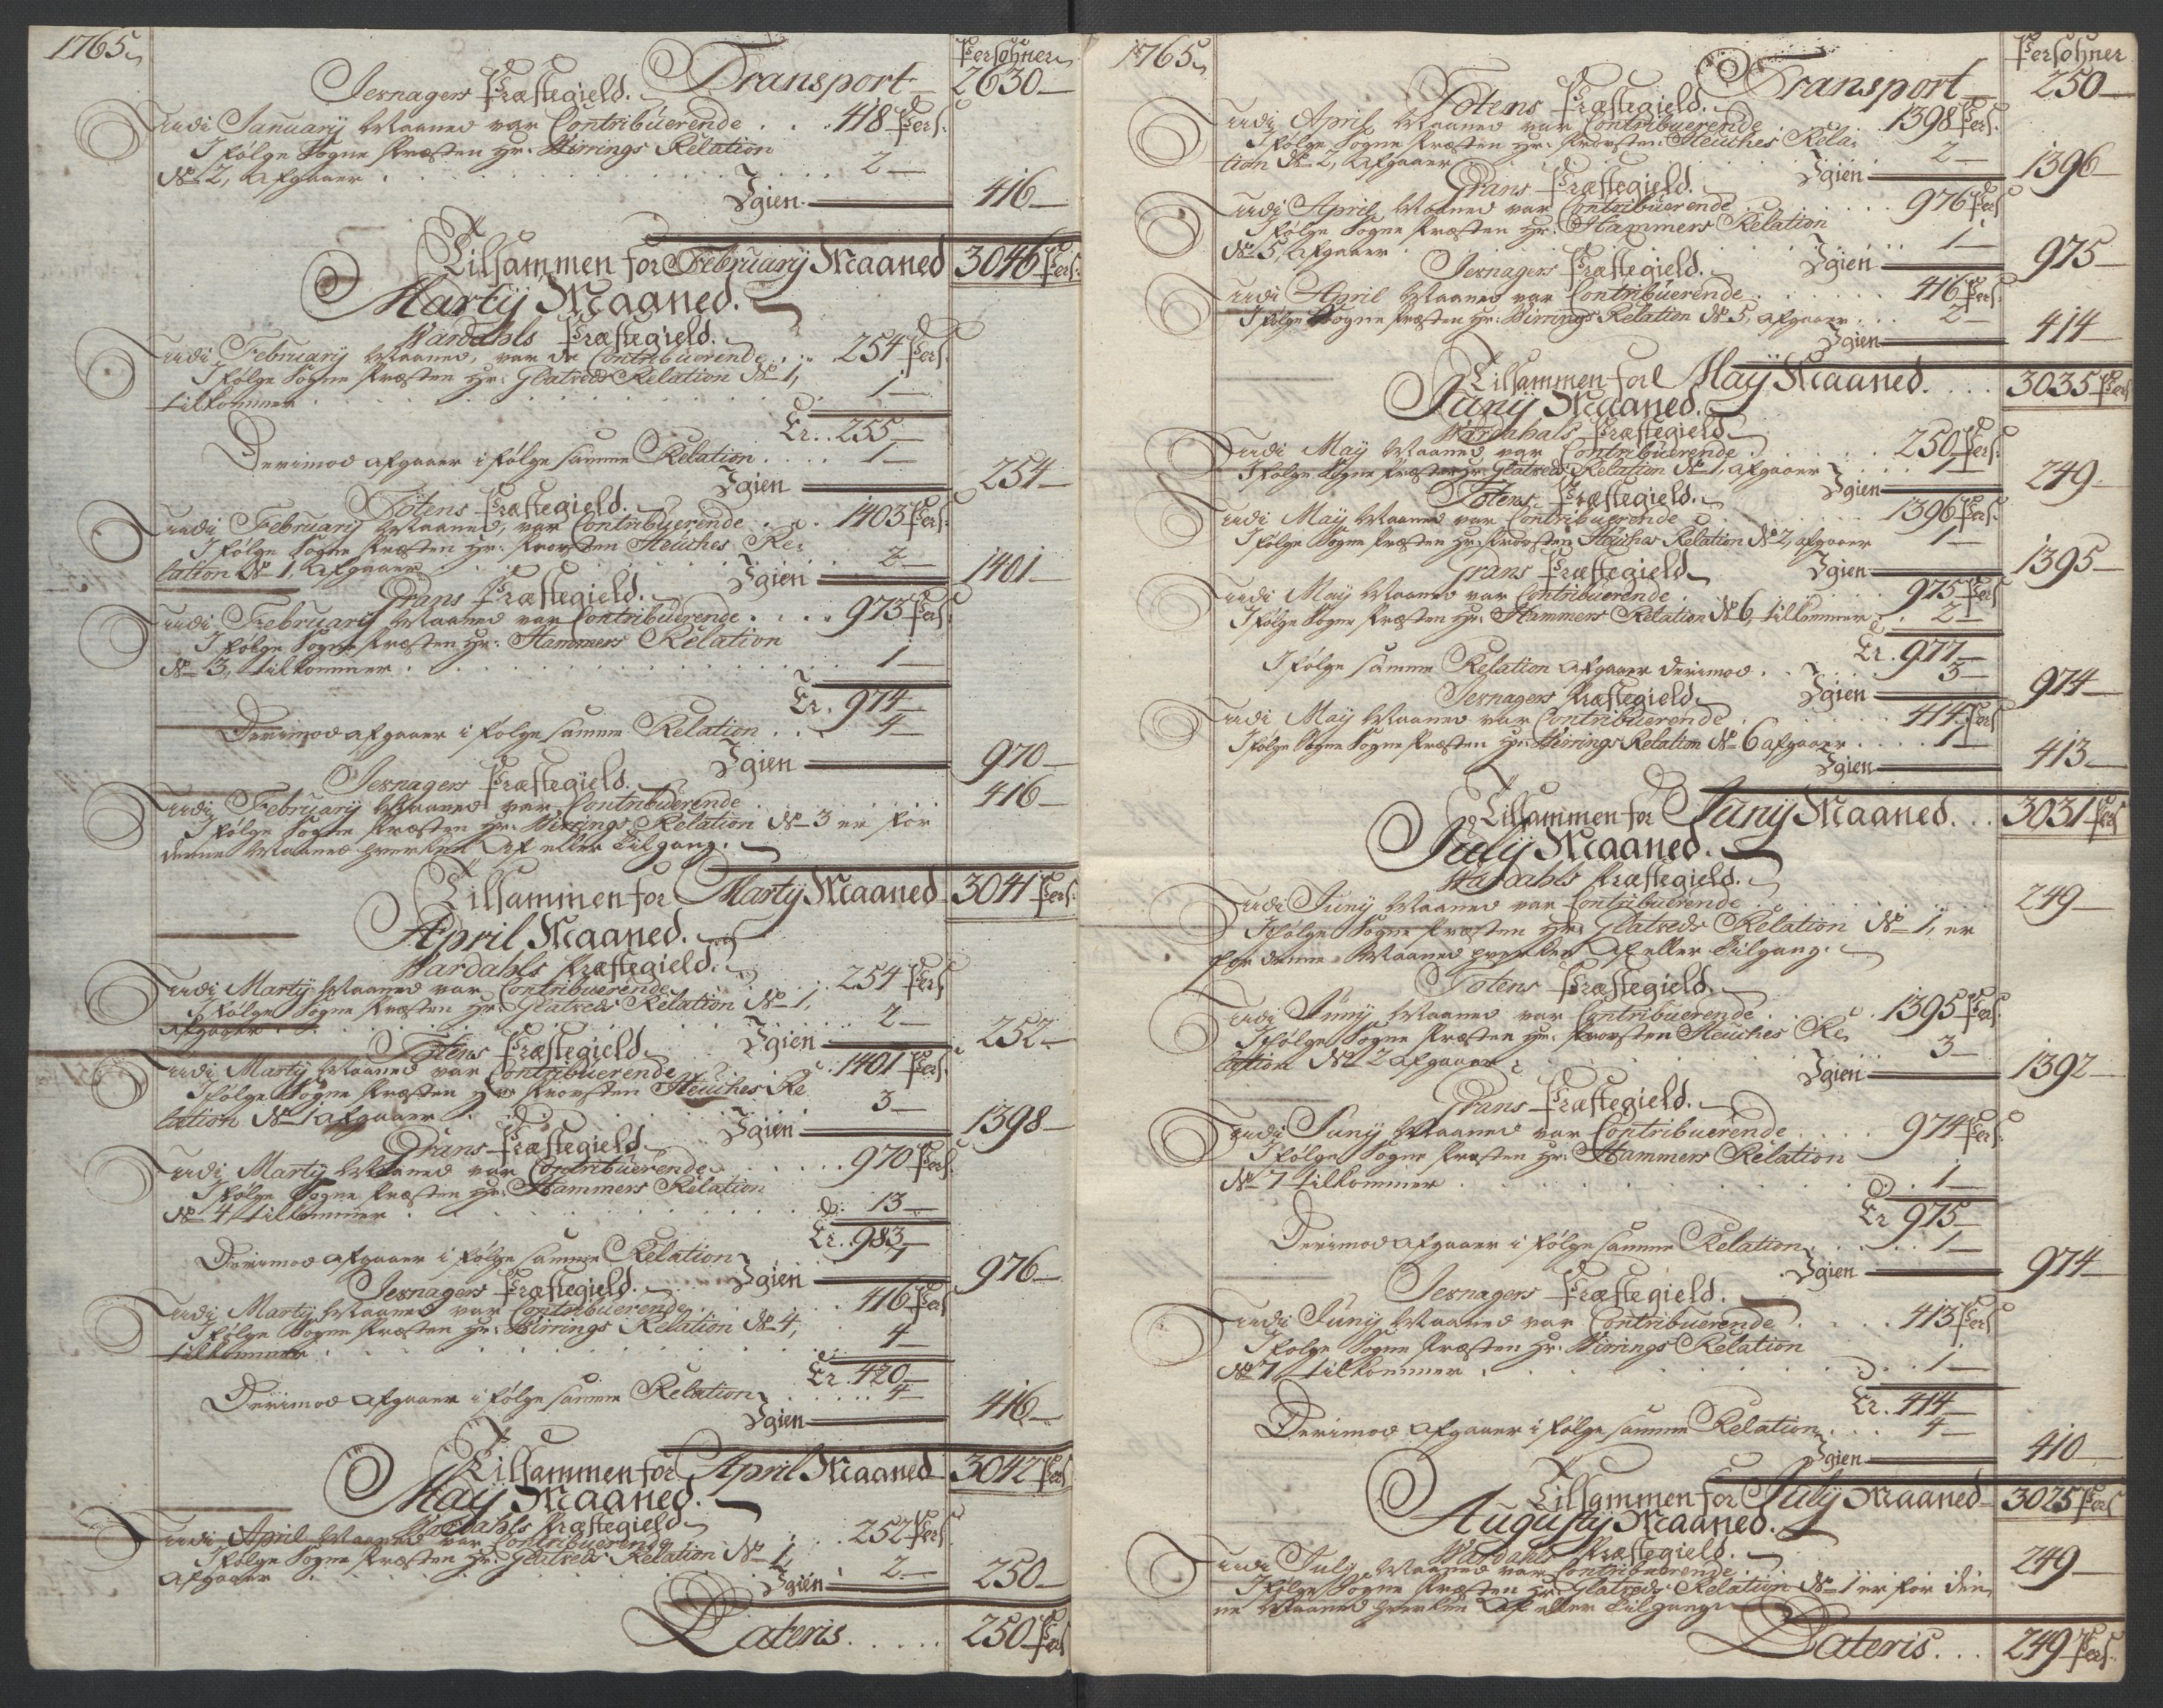 1765
Persohner
Transport 2630
Jevnagers Præstegield.
Udi January Maaned var Contribuerende . . . 418 Pers.
I følge Sogne Præsten Hr. Wirrings Relation
No 2, Afgaaer . . . 2
Igien 416
Tilsammen for February Maaned 3046 Pers.
Marty Maaned.
Wardahls Præstegield.
Udi February Maaned, var de Contribuerende . . . 254 Pers.
I følge Sogne Præsten Hr. Glatveds Relation No 1,
tilkommer . . . 1
Er . . 255
Derimod afgaaer i følge samme Relation . . . 1
Igien 254
Totens Præstegield.
Udi February Maaned, var Contribuerende . . . 1403 Pers.
I følge Sogne Præsten Hr. Provsten Heuches Re-
lation No 1, Afgaaer . . . 2
Igien 1401
Grans Præstegield.
Udi February Maaned var Contribuerende . . . 973 Pers.
I følge Sogne Præsten Hr. Hammers Relation
No 3, tilkommer . . . 1
Er . 974
Derimod afgaaer i følge samme Relation . . . 4
Igien 970
Jevnagers Præstegield.
Udi February Maaned var Contribuerende . . . 416
I følge Sogne Præsten Hr. Wirrings Relation No 3 er for
denne Maaned hverken Af eller Tilgang.
Tilsammen for Marty Maaned 3041 Pers.
April Maaned.
Wardahls Præstegield.
Udi Marty Maaned var Contribuerende . . . 254 Pers
I følge Sogne Præsten Hr. Glatveds Relation No 1,
Afgaaer . . . 2
Igien 252
Totens Præstegield.
Udi Marty Maaned var Contribuerende . . . 1401 Pers.
I følge Sogne Præsten Hr. Provsten Heuches Re
lation No 1 Afgaaer . . . 3
Igien 1398
Grans Præstegield.
Udi Marty Maaned var Contribuerende . . . 970 Pers.
I følge Sogne Præsten Hr. Hammers Relation
No 4, tilkommer . . . 13
Er . 983
Derimod afgaaer i følge samme Relation . . . 7
Igien 976
Jevnagers Præstegield.
Udi Marty Maaned var Contribuerende . . . 416 Pers
I følge Sogne Præsten Hr. Wirrings Relation No 4,
tilkommer . . . 4
Er . 420
Derimod afgaaer i følge samme Relation . . . 4
Igien 416
Tilsammen for April Maaned 3042 Pers
May Maaned.
Wardahls Præstegield
Udi April Maaned var Contribuerende . . . 252 Pers
I følge Sogne Præsten Hr. Glatveds Relation No 1,
Afgaaer . . . 2
Igien 250
Lateris . . . . . 250 Pers
1765
Persohner
Transport 250
Totens Præstegield.
Udi April Maaned var Contribuerende . . . 1398 Pers.
I følge Sogne Præsten Hr. Provsten Heuches Rela-
tion No 2, Afgaaer . . . 2
Igien 1396
Grans Præstegield.
Udi April Maaned var Contribuerende . . . 976 Pers
I følge Sogne Præsten Hr. Hammers Relation
No 5, Afgaaer . . . 1
Igien 975
Jevnagers Præstegield.
Udi April Maaned var Contribuerende . . . 416 Pers.
I følge Sogne Præsten Hr. Wirrings Relation No 5, afgaaer . . . 2
Igien 414
Tilsammen for May Maaned . . . . 3035 Pers
Juny Maaned.
Wardahls Præstegield
Udi May Maaned var Contribuerende . . . 250 Pers.
I følge Sogne Præsten Hr. Glatveds Relation No 1, afgaaer . . . 1
Igien 249
Totens Præstegield.
Udi May Maaned var Contribuerende . . . 1396 Pers.
I følge Sogne Præsten Hr. Provsten Heuches Relation No 2, afgaaer 1
Igien 1395
Grans Præstegield
Udi May Maaned var Contribuerende . . . 975 Pers
I følge Sogne Præsten Hr. Hammers Relation No 6, tilkommer . . 2
Er . 977
I følge samme Relation afgaaer derimod . . . 3
Igien 974
Jevnagers Præstegield.
Udi May Maaned var Contribuerende . . . 414 Pers
I følge Sogne Sogne Præsten Hr. Wirrings Relation No 6 afgaaer . . . 1
Igien 413
Tilsammen for Juny Maaned . . . 3031 Pers
July Maaned.
Wardahls Præstegield.
Udi Juny Maaned var Contribuerende . . . 249
I følge Sogne Præsten Hr. Glatveds Relation No 1, er
for denne Maaned hverken Af eller Tilgang.
Totens Præstegield.
Udi Juny Maaned var Contribuerende . . . 1395 Pers.
I følge Sogne Præsten Hr. Provsten Heuches Re
lation No 2 afgaaer . . . 3
Igien 1392
Grans Præstegield.
Udi Juny Maaned var Contribuerende . . . 974 Pers.
I følge Sogne Præsten Hr. Hammers Relation
No 7 tilkommer . . . 1
Er 975
Derimod afgaaer i følge samme Relation . . . 1
Igien 974
Jevnagers Præstegield.
Udi Juny Maaned var Contribuerende . . . 413 Pers
I følge Sogne Præsten Hr. Wirrings Relation
No 7, tilkommer . . . 1
Er . 414
Derimod afgaaer i følge samme Relation . . . 4
Igien 410
Tilsammen for July Maaned 3025 Pers
Augusty Maaned.
Wardahls Præstegield.
Udi July Maaned var Contribuerende . . . 249
I følge Sogne Præsten Hr. Glatveds Relation No 1 er for den
ne Maaned hverken Af eller Tilgang
Lateris . . . 249 Pers.